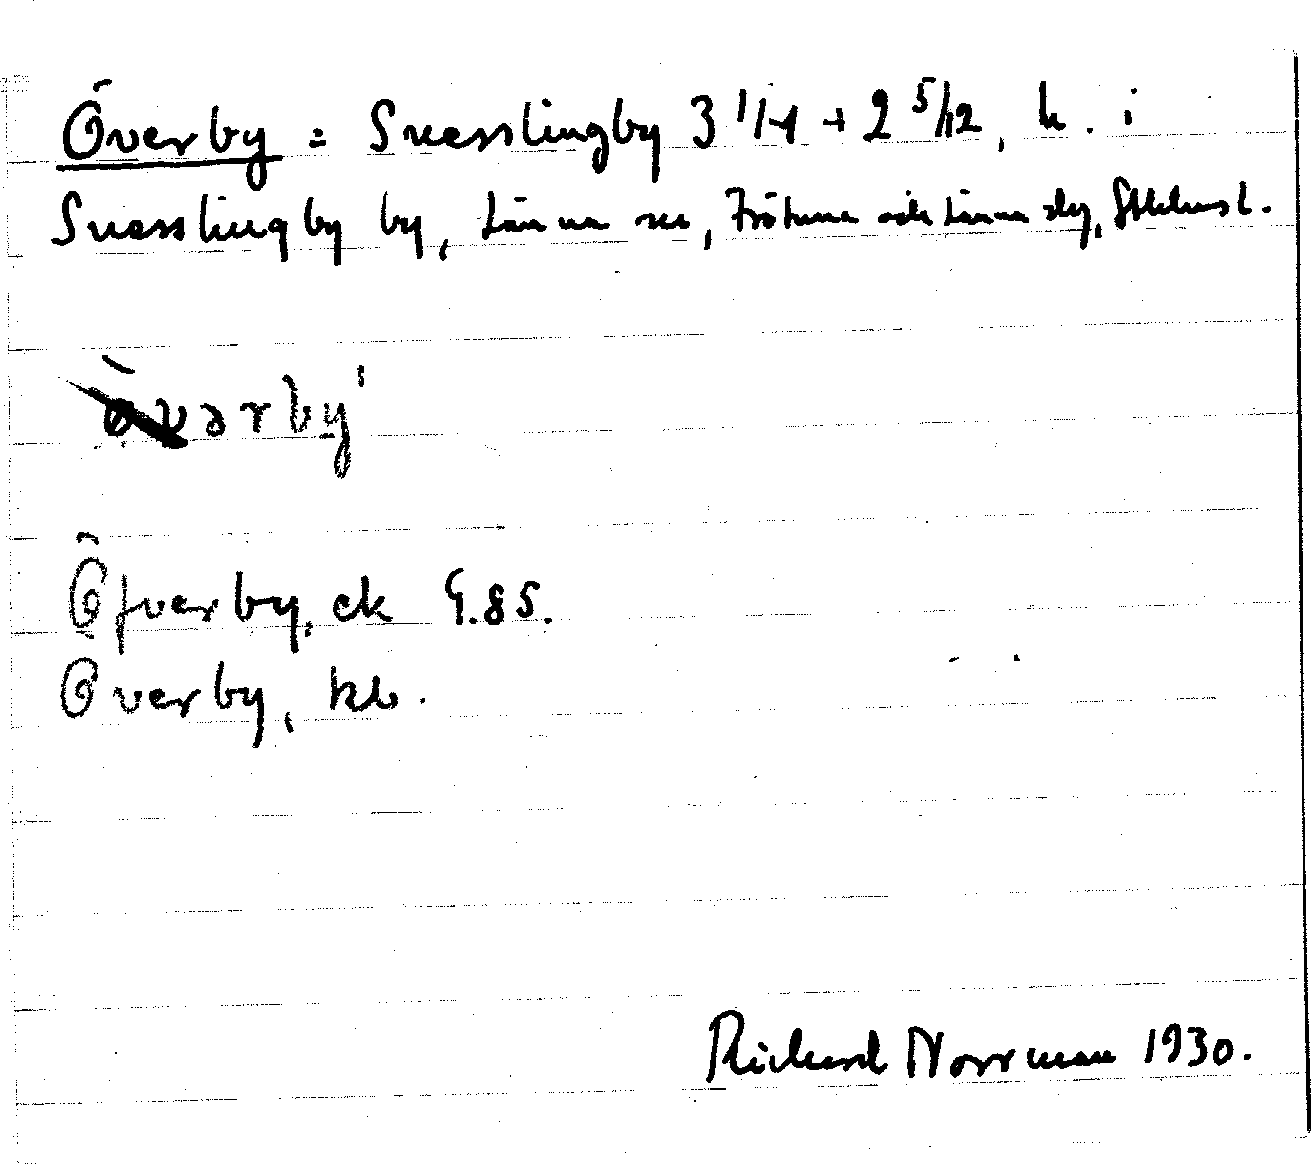 Överby = Snesslingby 3 1/4 + 2 5/12, h. i
Snesslingby by, Länna sn, Frötuna och Länna slg, Sthlms l.
Öfverby, ek G.85.
Överby, kb.
Richard Norrman 1930.